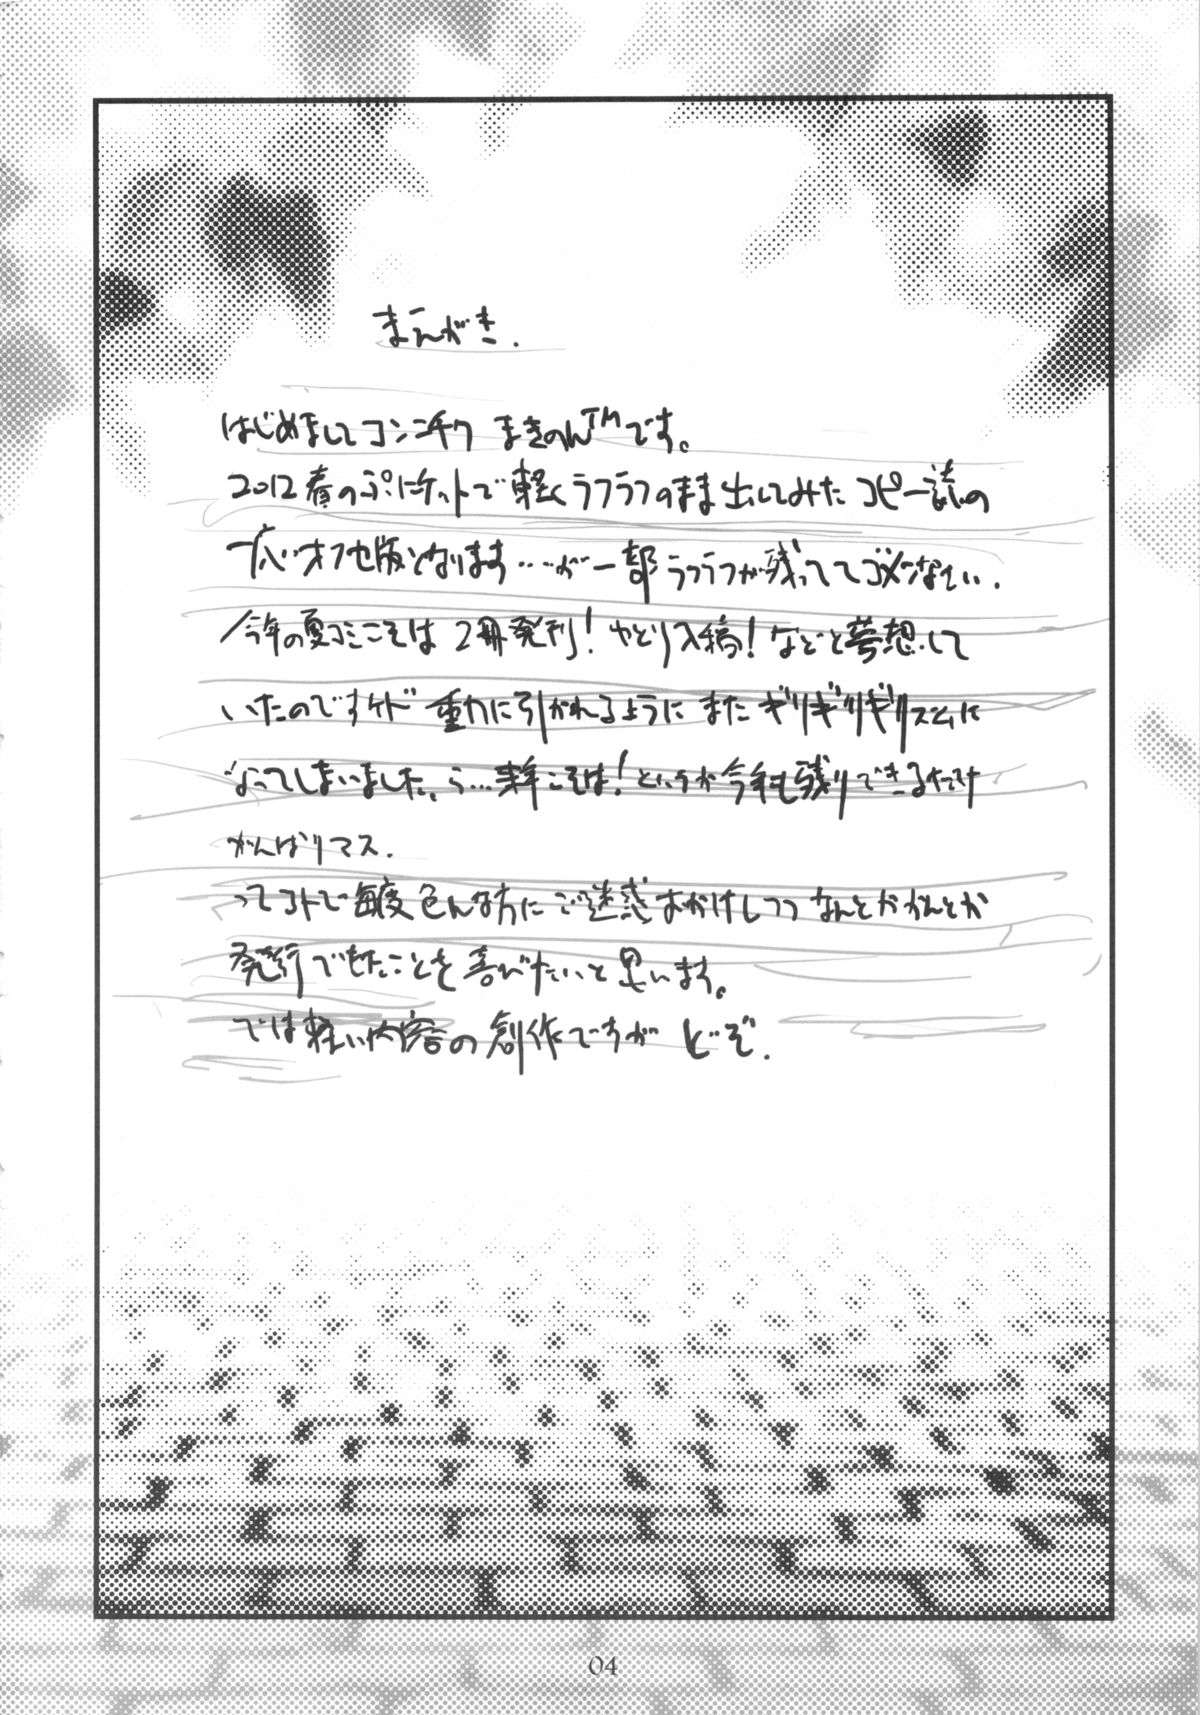 まえがき.
はじめましてコンニチワ まきのんTMです。
2012春のぷにケットで軽くラフラフのまま出してみた コピー誌の
オフセ版となります…が一部ラフラフが残っててゴメンなさい.
今年の夏コミこそは 2冊発刊! やとり入稿! などと夢想して
いたのですけド 重力に引かれるように また ギリギリギリズムに
なってしまいました。ら…来年こそは! というか今年も残りできるだけ
がんばりマス.
ってコトで毎度色んな方にご迷惑おかけしつつ なんとかかんとか
発行できたことを喜びたいと思います。
では軽い内容の創作ですが どーぞ.
04